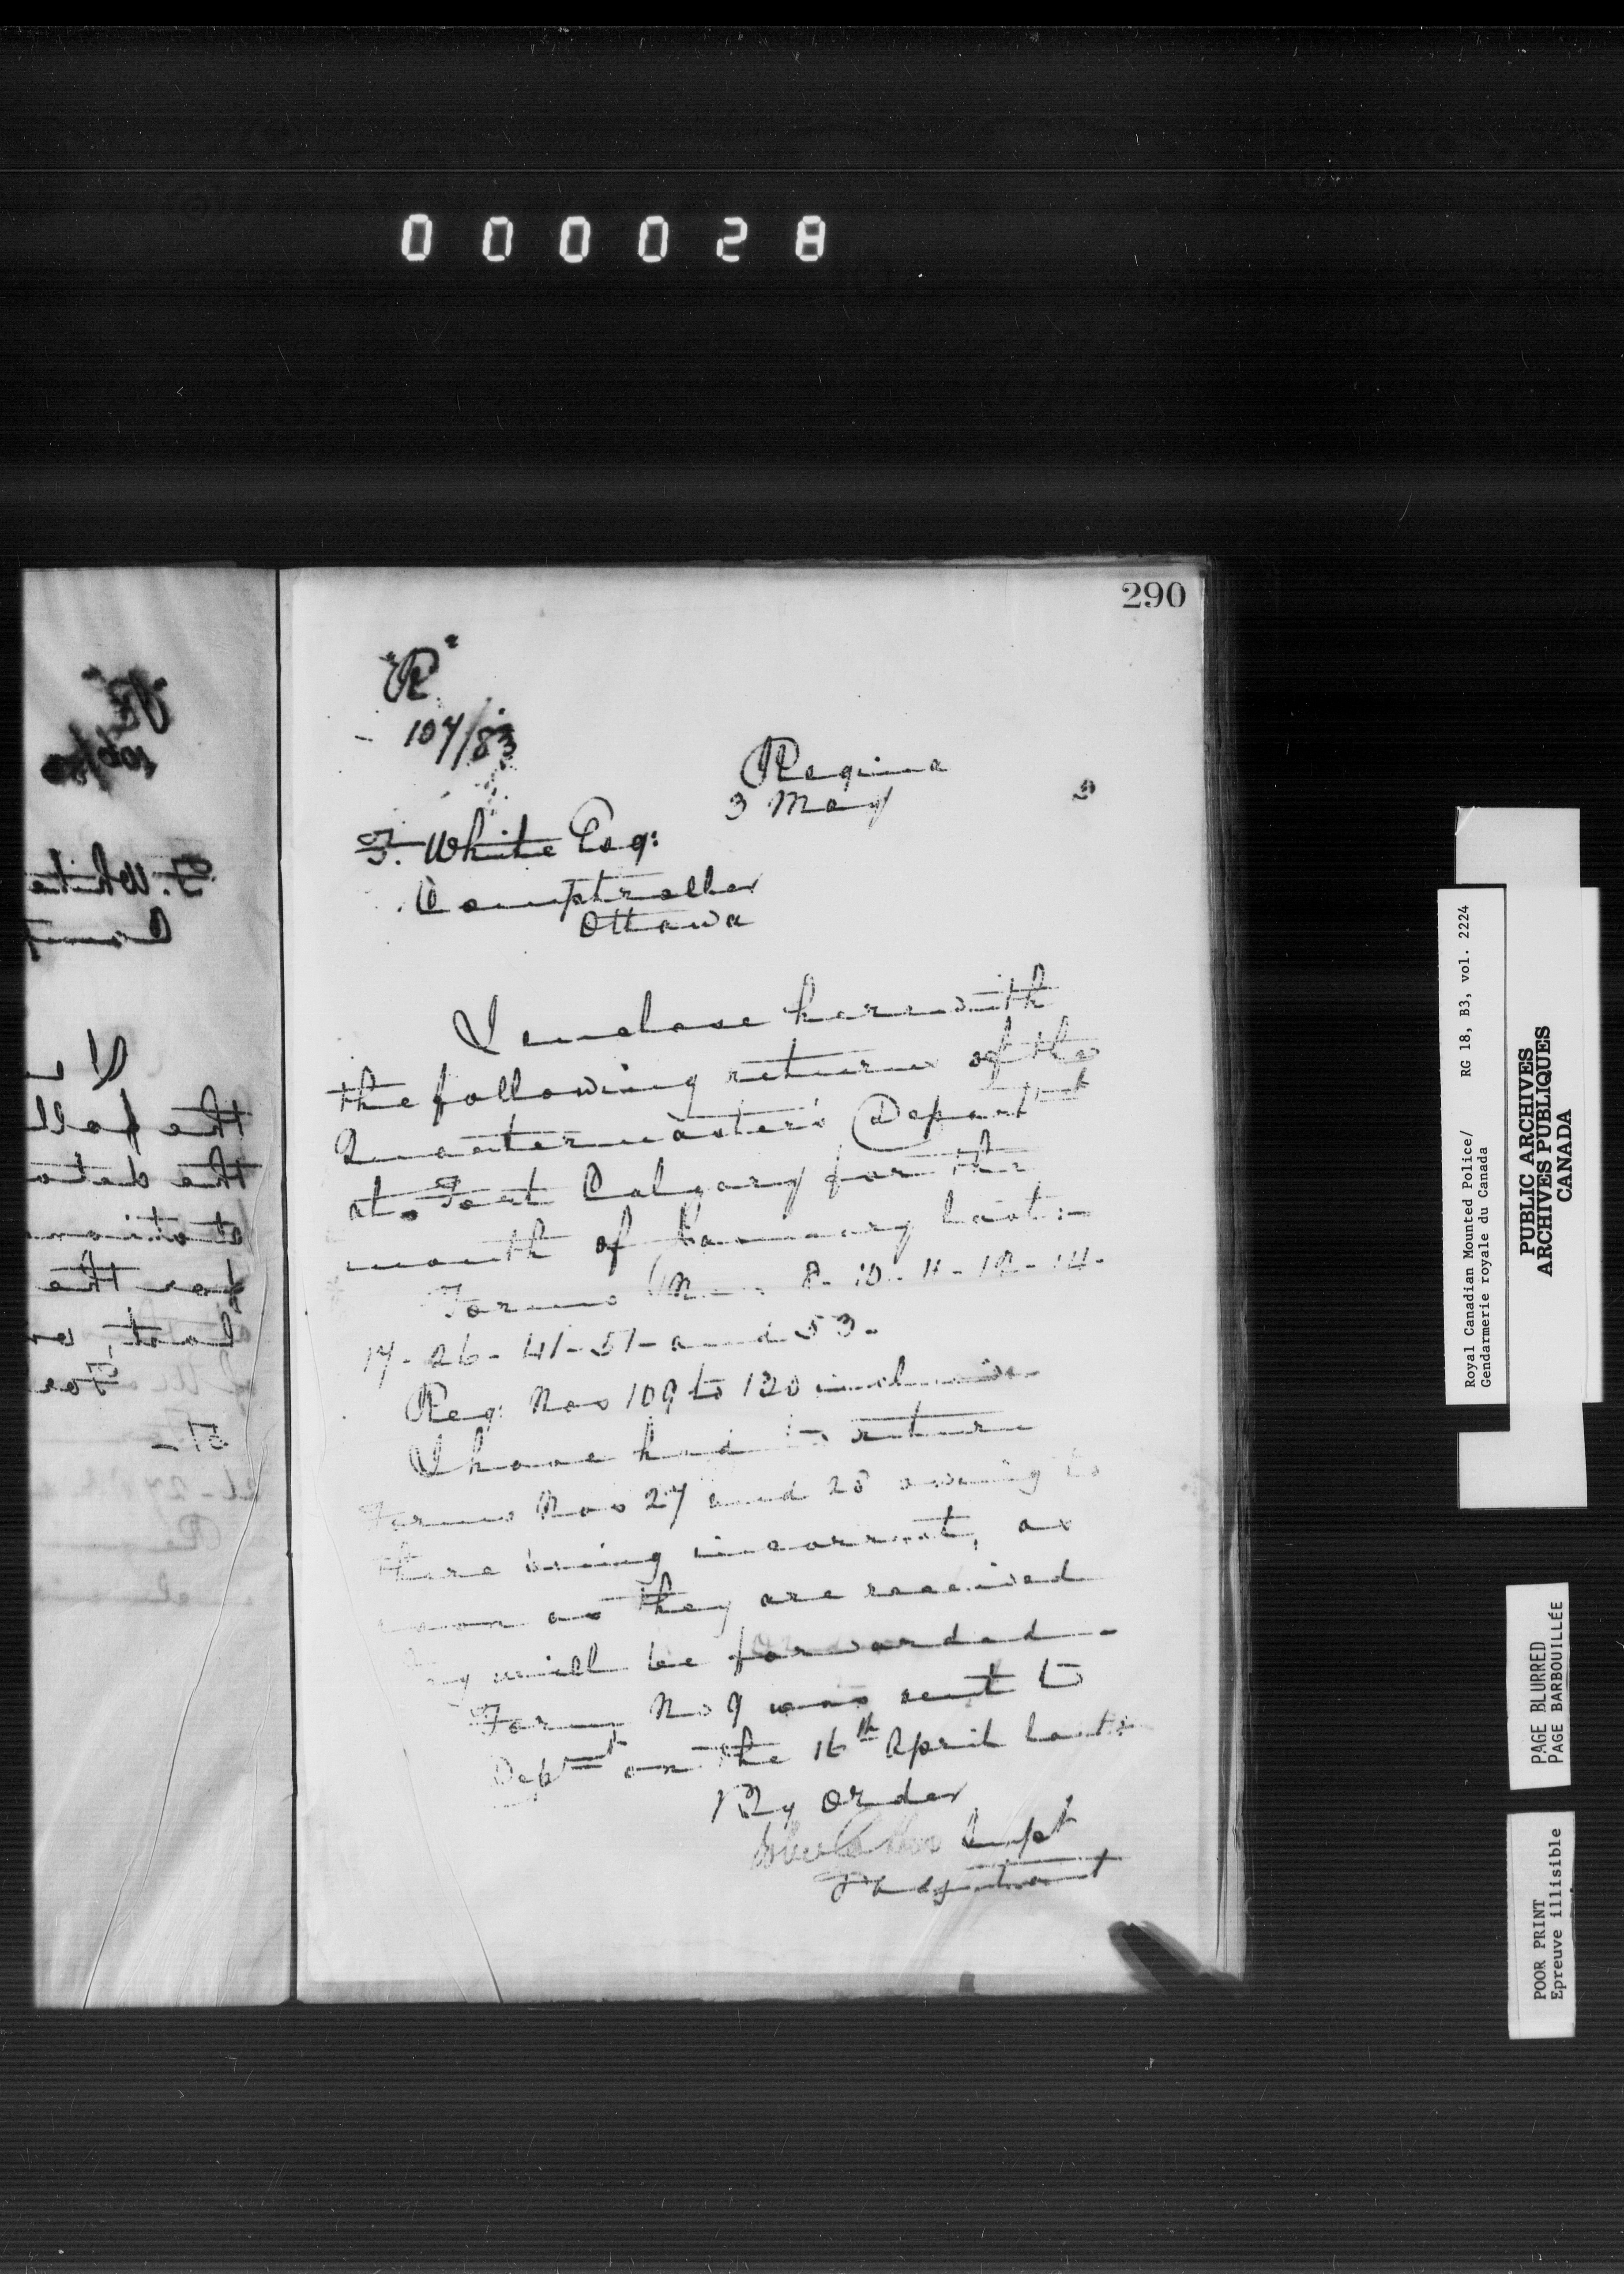 000028
290
"R"
107/83
Regina
3 May 3
F. White Esq:
Comptroller
Ottawa
I enclose herewith
the following returns of the
Quartermaster's Departmt
at Fort Calgary for the
month of January last:-
Forms Nos 8-10-11-12-14-
17-26-41-51-and 53.
Reg: Nos 109 to 120 inclusive
I have had to return
Forms Nos 27 and 28 owing to
there being incorrect, as
soon as they are received
they will be forwarded-
Form No 9 was sent to
Deptmt on the 16th April last
By order
Supt
F. White
Comp
I
the foll
the deta
stationed
for the
last,
For
51-
Royal Canadian Mounted Police/ RG 18, B3, vol. 2224
Gendarmerie royale du Canada
PUBLIC ARCHIVES
ARCHIVES PUBLIQUES
CANADA
PAGE BLURRED
PAGE BARBOUILLÉE
POOR PRINT
Epreuve illisible